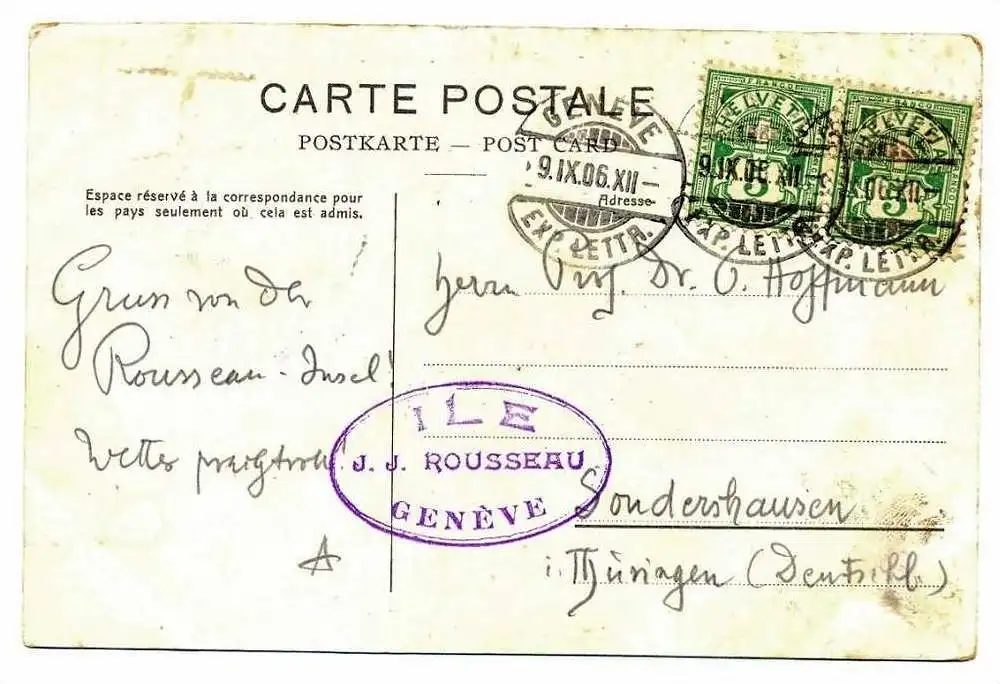 CARTE POSTALE
POSTKARTE — POST CARD
Espace réservé à la correspondance pour
les pays seulement où cela est admis.
Adresse
GENÈVE
9.IX.06.XII–
EXP. LETTR.
FRANCO
HELVETIA
5
9.IX.06.XII–
EXP. LETTR.
FRANCO
HELVETIA
5
IX.06.XII–
EXP. LETTR.
Gruss von der
Rousseau-Insel!
Wetter prachtvoll!
A
Herrn Prof. Dr. O. Hoffmann
Sondershausen
i. Thüringen (Deutschl.)
ILE
J. J. ROUSSEAU
GENÈVE